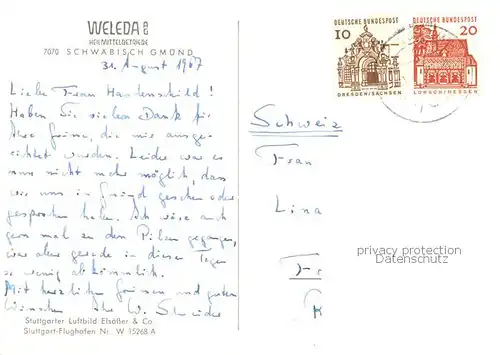 WELEDA AG
HEILMITTELBETRIEBE
7070 SCHWÄBISCH GMÜND
31. August 1967
Liebe Frau
Haben Sie vielen Dank für
Ihre Grüsse, die mir ausge-
richtet wurden. Leider war es
uns nicht mehr möglich, dass
wir uns in Gmünd gesehen oder
gesprochen haben. Ich wäre auch
gern mal zu den Pilzen gegangen,
war aber gerade in diesen Tagen
so wenig abkömmlich.
Mit herzlichen Grüssen und guten
Wünschen Ihr W. Schneider
Stuttgarter Luftbild Elsäßer & Co
Stuttgart-Flughafen Nr. W 15268 A
DEUTSCHE BUNDESPOST
10
DRESDEN/SACHSEN
DEUTSCHE BUNDESPOST
20
LORSCH/HESSEN
Schweiz
Frau
Lina
privacy protection
Datenschutz